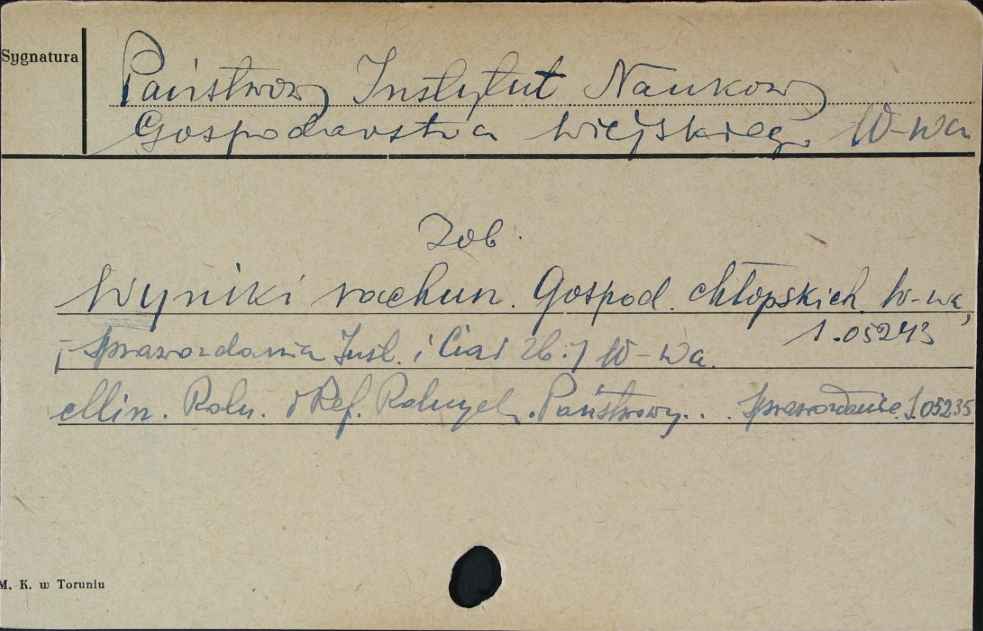 Sygnatura
Państwowy Instytut Naukowy
Gospodarstwa Wiejskiego W-wa
Zob.
Wyniki rachun. Gospod. chłopskich. W-wa,
1.05243
Sprawozdania Inst. i Ciał Zb. W-wa.
Min. Roln. i Ref. Rolnych. Państwowy... Sprawozdanie. 1.05235
M. K. w Toruniu